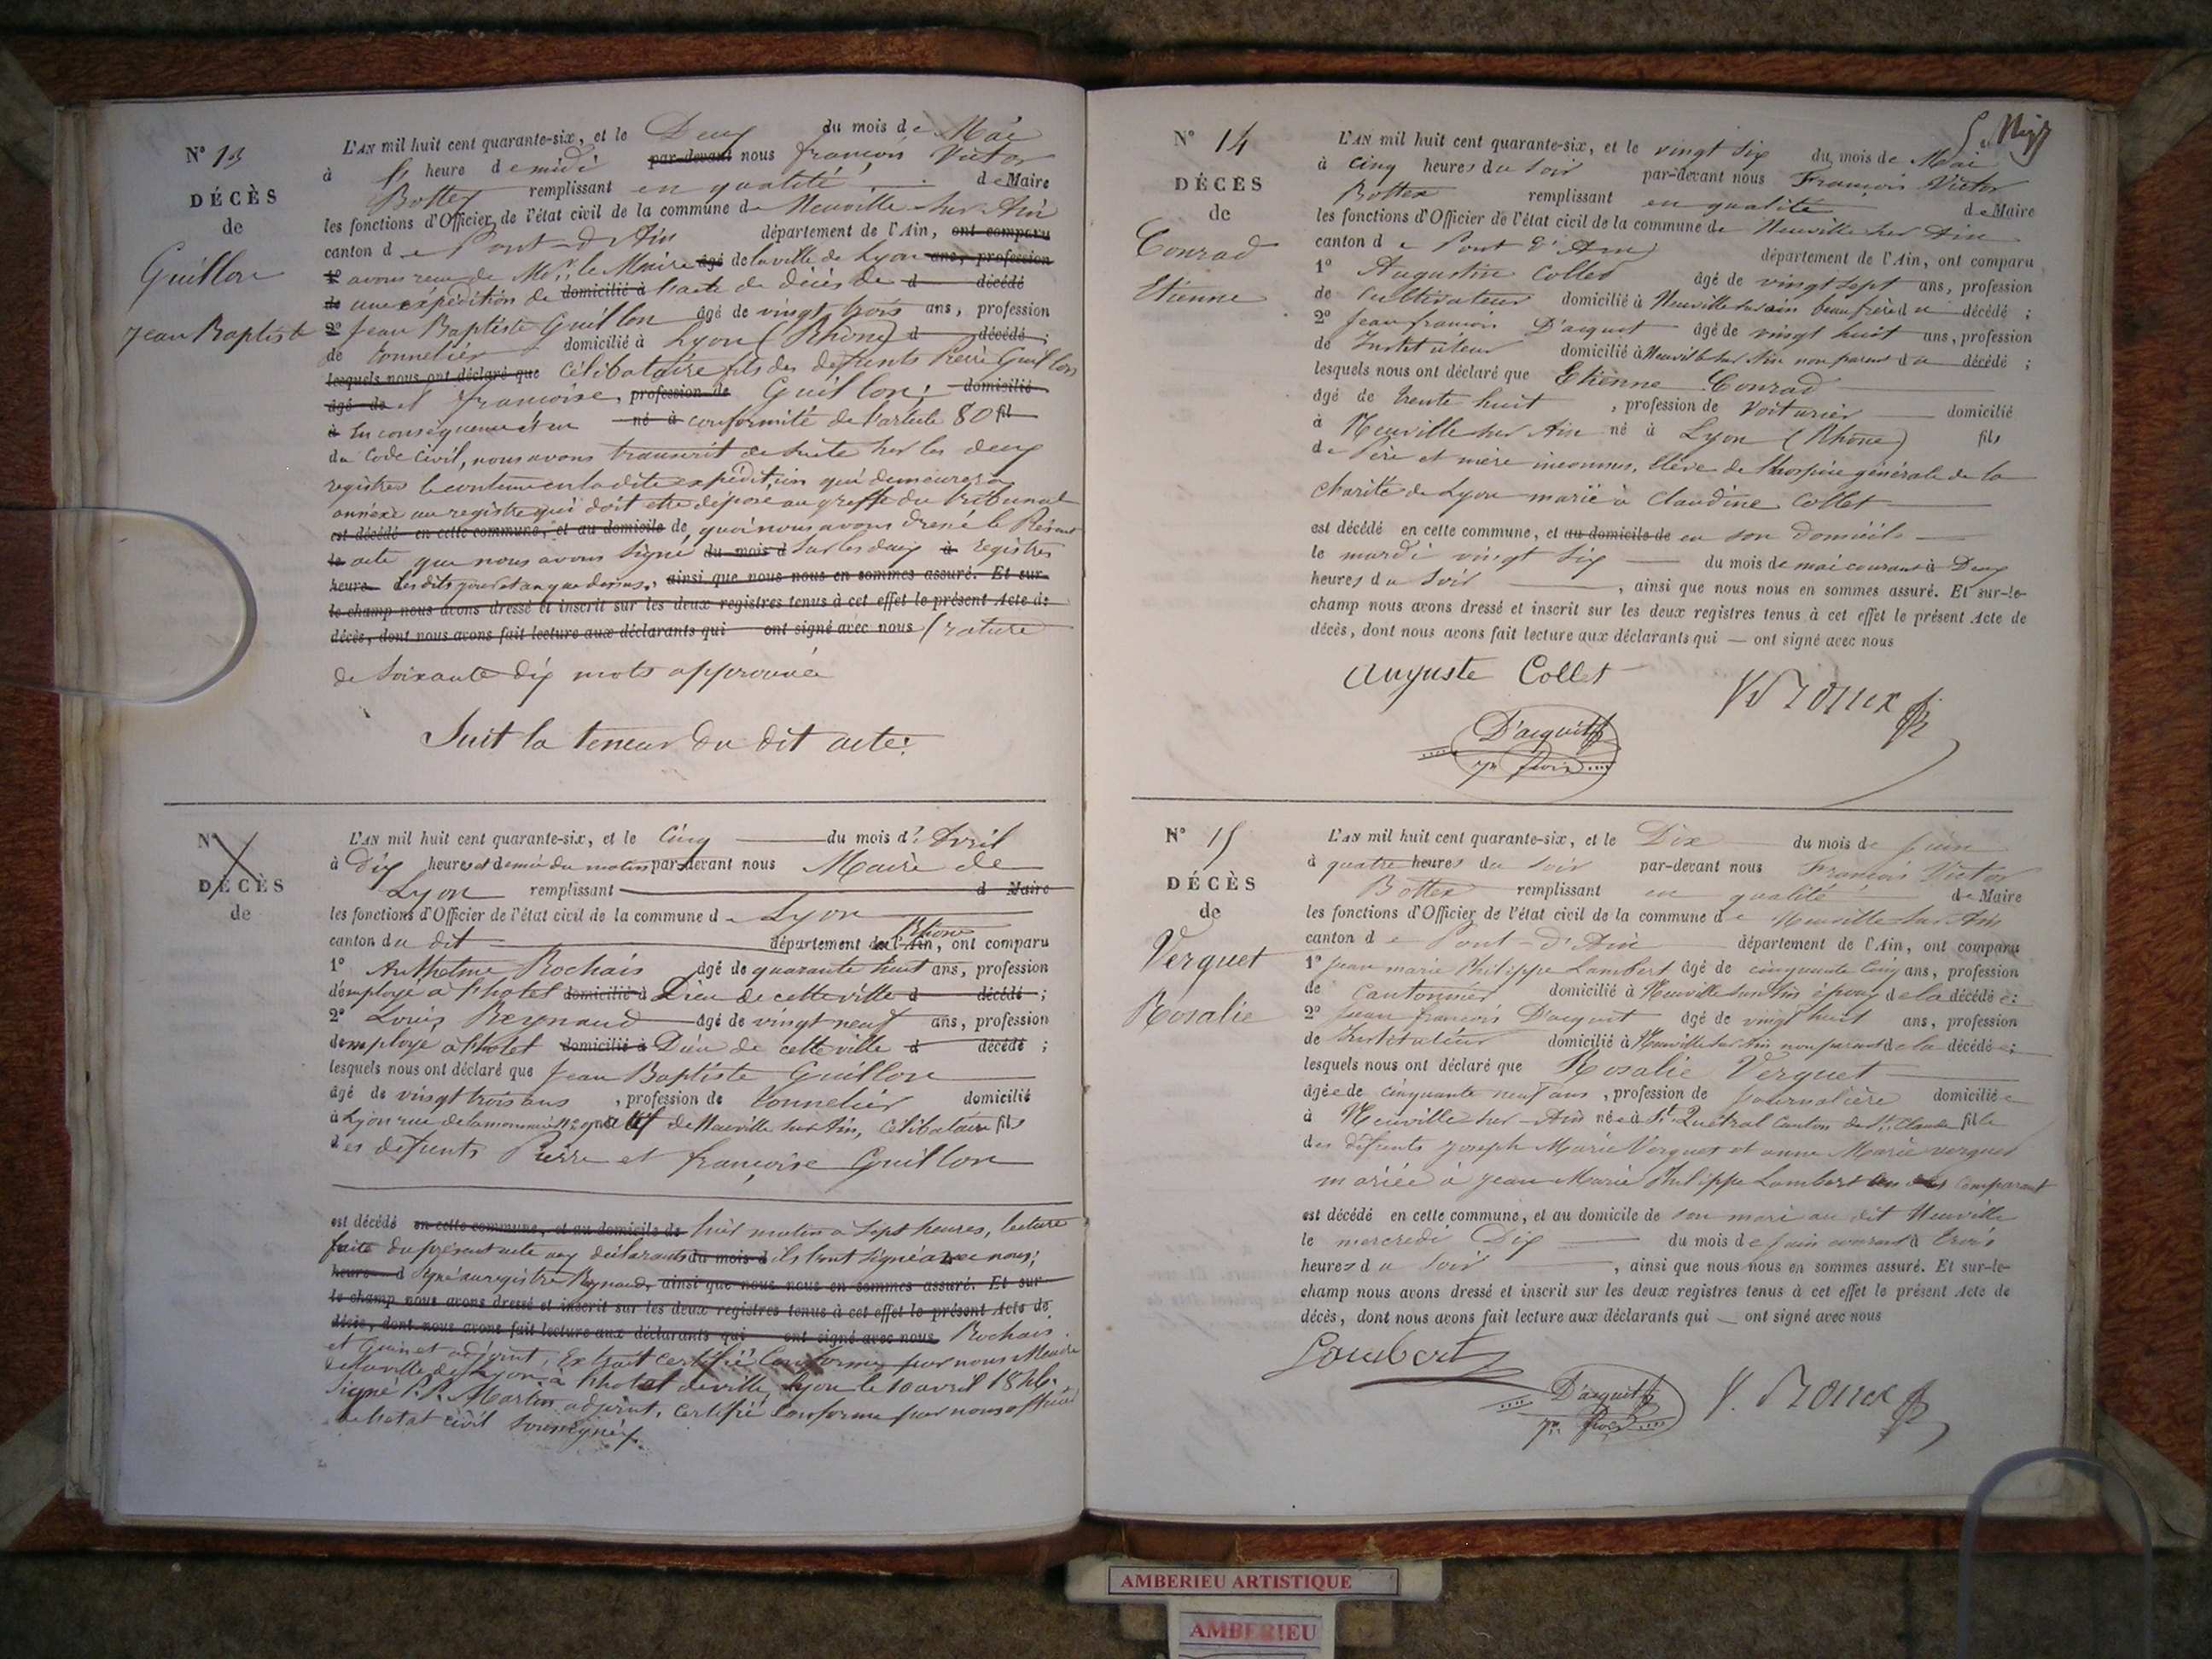 N° 13
DÉCÈS
de
Guillon
Jean Baptiste
L'AN mil huit cent quarante-six, et le Deux du mois de Mai
à heure de midi par-devant nous françois Victor
Bottex remplissant en qualité de Maire
les fonctions d'Officier de l'état civil de la commune de Neuville sur Ain
canton de Pont-d'Ain département de l'Ain, ont comparu
1° avons reçu de Mr. le Maire âgé de la ville de Lyon ans, profession
de une expédition de domicilié à l'acte de décès de d décédé
2° Jean Baptiste Guillon âgé de vingt trois ans, profession
de tonnelier domicilié à Lyon (Rhône) d décédé ;
lesquels nous ont déclaré que Célibataire fils des défunts Pierre Guillon
âgé de et françoise profession de Guillon; domicilié
à En conséquence et en né à conformité de l'article 80 fil
du Code civil, nous avons transcrit de suite sur les deux
registres le contenu en la dite expédition qui demeurera
annexé au registre qui doit être déposé au greffe du tribunal
est décédé en cette commune, et au domicile de, quoi nous avons dressé le Présent
le acte que nous avons signé du mois d sur les deux à registres
heure les dits jour et an que dessus. ainsi que nous nous en sommes assuré. Et sur-
le champ nous avons dressé et inscrit sur les deux registres tenus à cet effet le présent Acte de
décès, dont nous avons fait lecture aux déclarants qui ont signé avec nous (rature
de soixante dix mots approuvée
Suit la teneur du dit acte:
N°
DÉCÈS
de
L'AN mil huit cent quarante-six, et le Cinq du mois d'Avril
à dix heures et demie du matin par-devant nous Maire de
Lyon remplissant d Maire
les fonctions d'Officier de l'état civil de la commune de Lyon
canton du dit département de l'Ain, Rhône ont comparu
1° Anthelme Rochais âgé de quarante huit ans, profession
d'employé à l'hotel domicilié à Dieu de cette ville d décédé ;
2° Louis Reynaud âgé de vingt neuf ans, profession
d'employé à l'hotel domicilié à Dieu de cette ville d décédé ;
lesquels nous ont déclaré que Jean Baptiste Guillon
âgé de vingt trois ans, profession de tonnelier domicilié
à Lyon rue de la monnaie de Neuville sur Ain, célibataire fils
des défunts Pierre et françoise Guillon
est décédé en cette commune, et au domicile de hier matin à sept heures, lecture
faite du présent acte aux déclarants du mois d ils l'ont signé avec nous;
heure d signé au registre Reynaud, ainsi que nous nous en sommes assuré. Et sur-
le champ nous avons dressé et inscrit sur les deux registres tenus à cet effet le présent Acte de
décès, dont nous avons fait lecture aux déclarants qui ont signé avec nous Rochais
et Guinet adjoint, Extrait certifié Conforme par nous Maire
de la ville de Lyon à l'hotel de ville, Lyon le 10 avril 1846.
Signé P.P. Martin adjoint. Certifié Conforme par nous officier
de l'état civil soussigné.
N° 14
DÉCÈS
de
Conrad
Etienne
L'AN mil huit cent quarante-six, et le vingt six du mois de Mai
à cinq heures du soir par-devant nous François Victor
Bottex remplissant en qualité de Maire
les fonctions d'Officier de l'état civil de la commune de Neuville sur Ain
canton de Pont d'Ain département de l'Ain, ont comparu
1° Augustin Collet âgé de vingt sept ans, profession
de Cultivateur domicilié à Neuville sur ain beau frère du décédé ;
2° Jean françois D'acquet âgé de vingt huit ans, profession
de Instituteur domicilié à Neuville sur Ain non parent du décédé ;
lesquels nous ont déclaré que Etienne Conrad
âgé de trente huit, profession de Voiturier domicilié
à Neuville sur Ain né à Lyon (Rhône) fils
de Père et mère inconnus, élève de l'hospice générale de la
charité de Lyon marié à Claudine Collet
est décédé en cette commune, et au domicile de en son domicile
le mardi vingt six du mois de mai courant à Deux
heures du soir, ainsi que nous nous en sommes assuré. Et sur-le-
champ nous avons dressé et inscrit sur les deux registres tenus à cet effet le présent Acte de
décès, dont nous avons fait lecture aux déclarants qui — ont signé avec nous
Auguste Collet
D'acquet
N° 15
DÉCÈS
de
Verguet
Rosalie
L'AN mil huit cent quarante-six, et le Dix du mois de Juin
à quatre heures du soir par-devant nous François Victor
Bottex remplissant en qualité de Maire
les fonctions d'Officier de l'état civil de la commune de Neuville sur Ain
canton de Pont-d'Ain département de l'Ain, ont comparu
1° Jean marie Philippe Lambert âgé de cinquante cinq ans, profession
de Cantonnier domicilié à Neuville sur Ain époux de la décédée ;
2° Jean françois D'acquet âgé de vingt huit ans, profession
de Instituteur domicilié à Neuville sur Ain non parent de la décédée ;
lesquels nous ont déclaré que Rosalie Verguet
âgée de cinquante neuf ans, profession de Journalière domiciliée
à Neuville sur-Ain née à St. Canton de St. Claude fille
des défunts Joseph Marie Verguet et anne Marie verguet
mariée à Jean Marie Philippe Lambert comparant
est décédé en cette commune, et au domicile de son mari au dit Neuville
le mercredi Dix du mois de Juin courant à trois
heures du soir, ainsi que nous nous en sommes assuré. Et sur-le-
champ nous avons dressé et inscrit sur les deux registres tenus à cet effet le présent Acte de
décès, dont nous avons fait lecture aux déclarants qui — ont signé avec nous
Lambert
D'acquet
AMBERIEU ARTISTIQUE
AMBERIEU